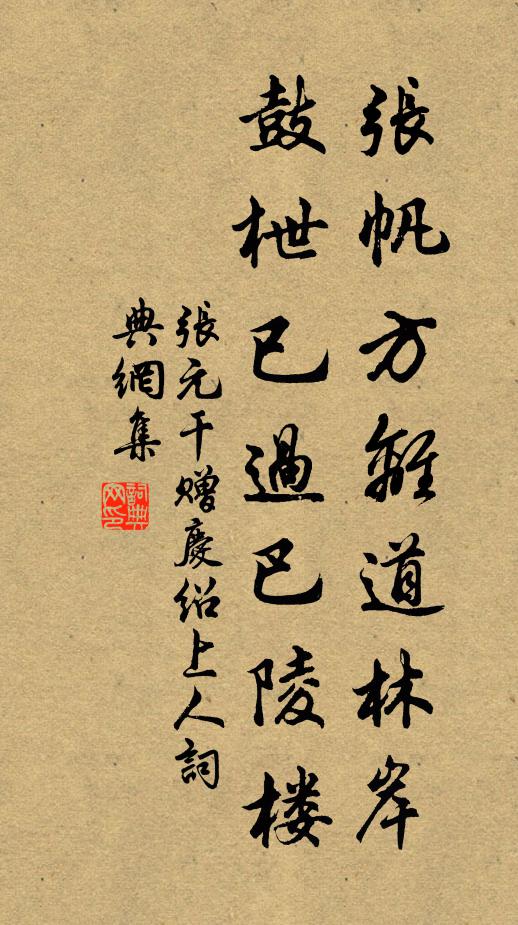 張帆方離道林岸
鼓枻已過巴陵楼
張元干贈慶紹上人詞
典網集
詞典网印